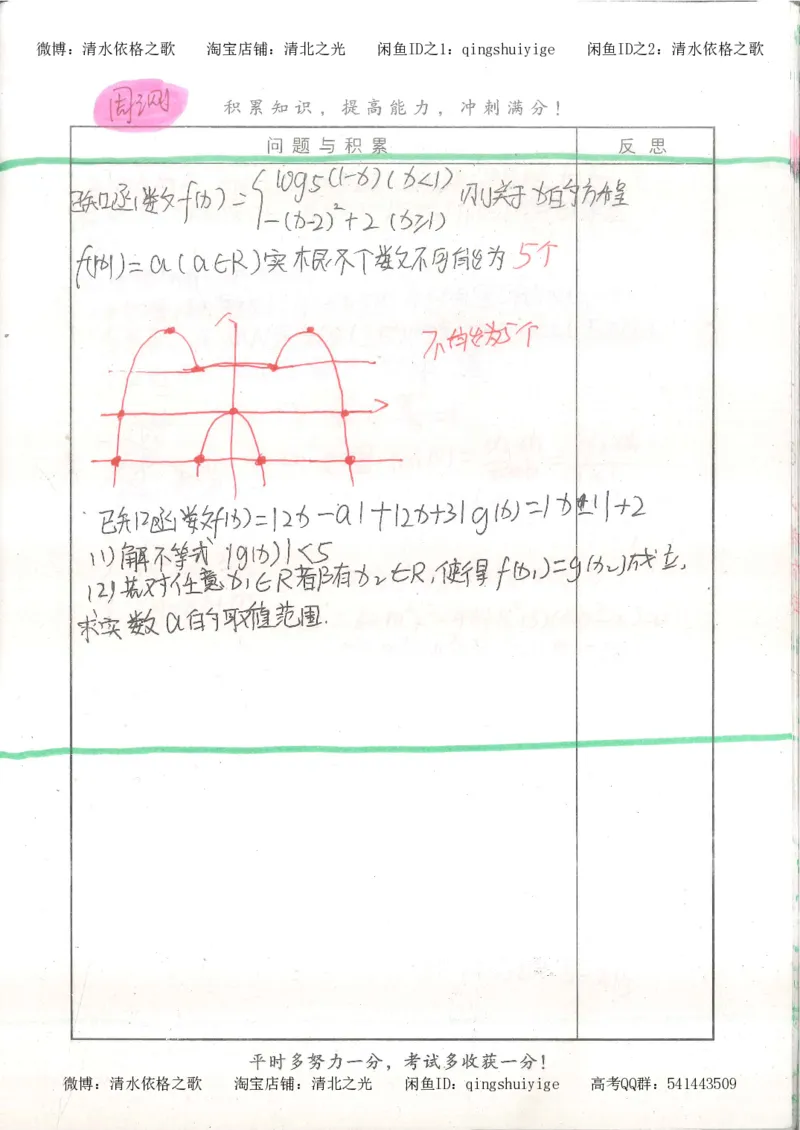 微博：清水依格之歌 淘宝店铺：清北之光 闲鱼ID之1：qingshuiyige 闲鱼ID之2：清水依格之歌
周测
积累知识，提高能力，冲刺满分！
问题与积累 反思
已知函数f(x)={log5(1-x)(x<1) 则关于x的方程
-(x-2)²+2(x≥1)
f(|x|)=a(a∈R)实根个数不可能为 5个
不可能为5个
已知函数f(x)=|2x-a|+|2x+3| g(x)=|x-1|+2
(1)解不等式 |g(x)|<5
(2)若对任意x₁∈R都有x₂∈R,使得f(x₁)=g(x₂)成立,
求实数a的取值范围.
平时多努力一分，考试多收获一分！
微博：清水依格之歌 淘宝店铺：清北之光 闲鱼ID：qingshuiyige 高考QQ群：541443509